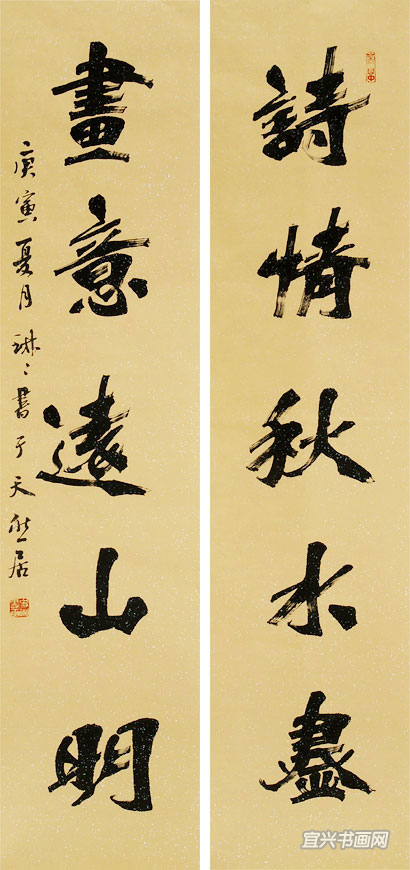 詩情秋水盡
畫意遠山明
庚寅夏月琳〻書于天然居
宜兴书画网